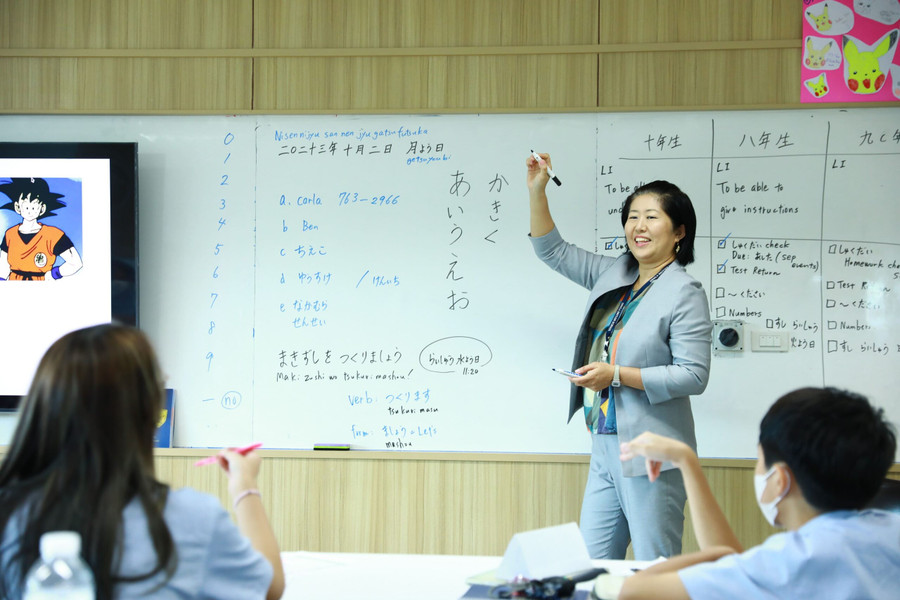 0
1
2
3
4
5
6
7
8
9
no
Nisennijyu san nen jyu gatsu futsuka
二〇二十三年 十月二日 月よう日
getsuyoubi
a. carla 763-2966
b Ben
c ちえこ
d ゆうすけ / けんいち
e なかむら
せんせい
まきずしを つくりましょう
Makizushi wo tsukurimashou!
らいしゅう 水よう日
11:20
verb: つくります
tsukurimasu
form: ましょう = Let's
mashou
かきく
あいうえお
十年生
LI
To be
八年生
LI
To be able to
give instructions
しゅくだい check
Due: あした (Sep
events)
Test Return
〜ください
Numbers
すし らいしゅう
水よう日
九年
LI
しゅくだい
Homework
Test Return
〜ください
Numbers
すし らいしゅう